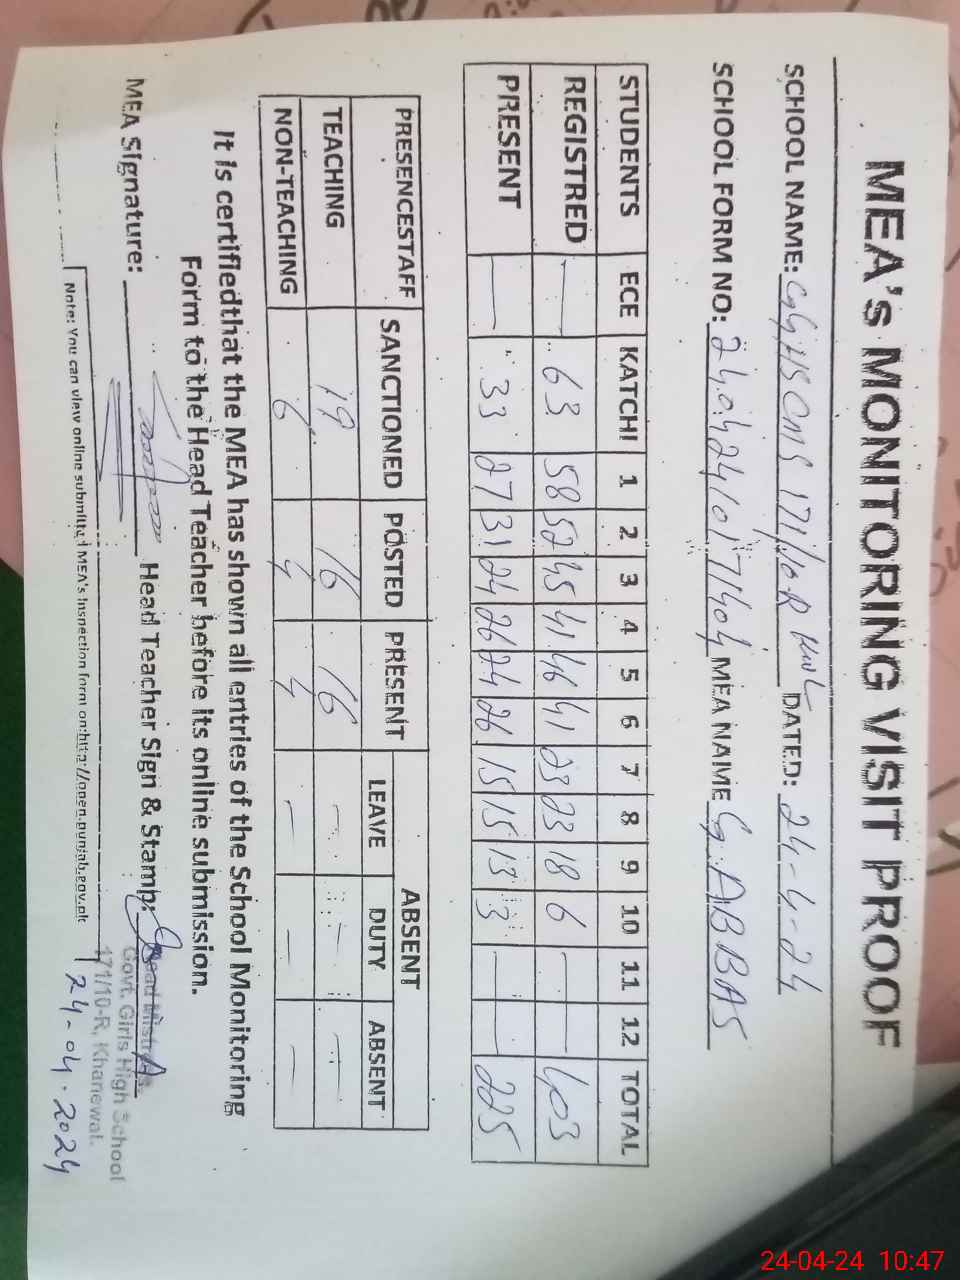 MEA's MONITORING VISIT PROOF
SCHOOL NAME: GGHS CMS 171/10.R KWL DATED: 24-4-24
SCHOOL FORM NO: MEA NAME G. ABBAS
STUDENTS ECE KATCHI 1 2 3 4 5 6 7 8 9 10 11 12 TOTAL
REGISTRED — 63 58 52 45 41 46 41 23 23 18 6 — — 403
PRESENT — 33 27 31 24 26 24 26 15 15 13 3 — — 225
PRESENCESTAFF SANCTIONED POSTED PRESENT ABSENT
LEAVE DUTY ABSENT
TEACHING 19 16 16 — — —
NON-TEACHING 6 4 4 — — —
It is certifiedthat the MEA has shown all entries of the School Monitoring
Form to the Head Teacher before its online submission.
MEA Signature: Head Teacher Sign & Stamp:
Head Mistress
Govt. Girls High School
171/10-R, Khanewal.
24-04-2024
Note: You can view online submitted MEA's Inspection form on:http://open.punjab.gov.pk
24-04-24 10:47